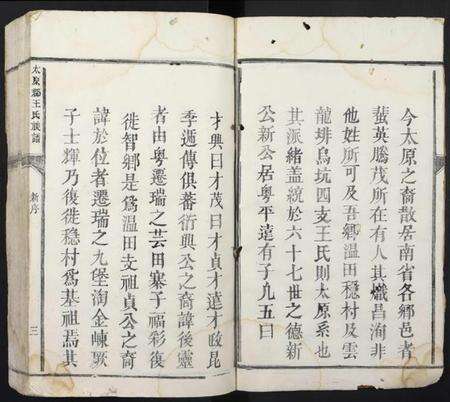 今太原之裔散居南省各鄉邑者
蜚英騰茂所在有人其熾昌洵非
他姓所可及吾鄉溫田穩村及雲
龍埤烏坑四支王氏則太原系也
其派緒蓋統於六十七世之德新
公新公居粤平遠有子凡五曰
才興曰才茂曰才貞才遠才政昆
季遞傳俱蕃衍興公之裔諱後靈
者由粤遷瑞之芸田寨子福彩復
徙智鄉是為溫田支祖貞公之裔
諱於位者遷瑞之九堡淘金崠厥
子士輝乃復徙穩村為基祖焉其
太原郡王氏聯譜
新序
三